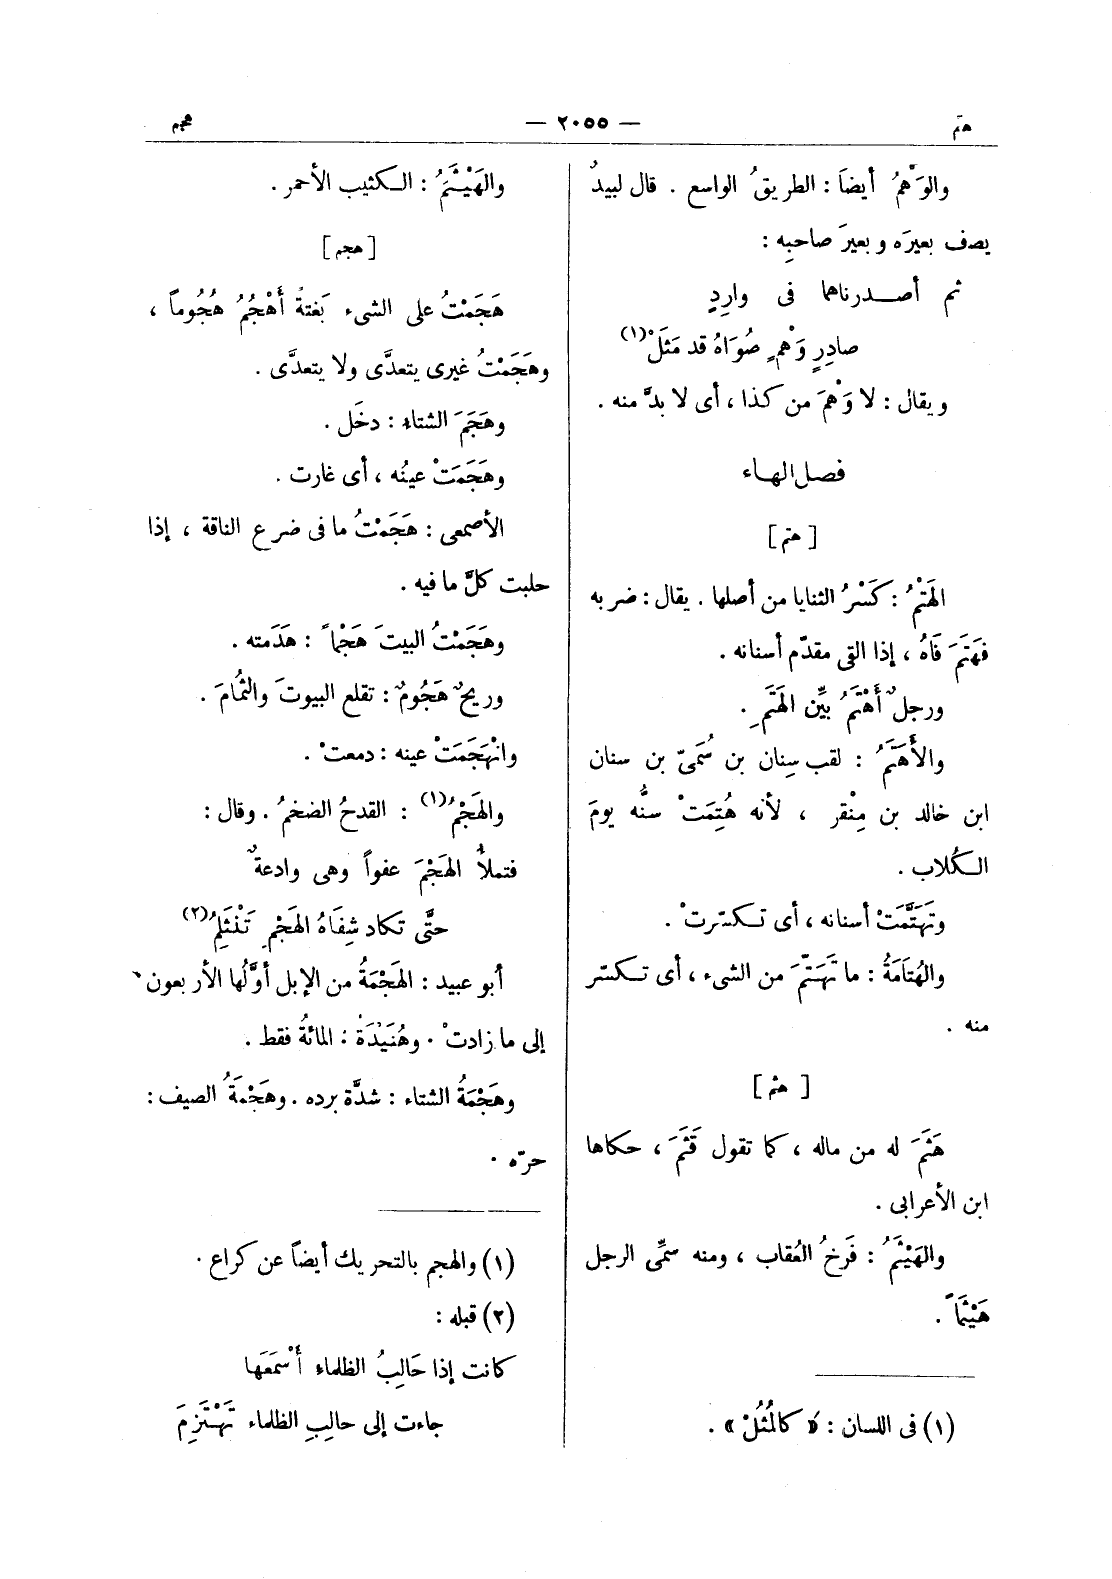 هتم
— ٢٠٥٥ —
هجم
والوَهْمُ أيضاً : الطريقُ الواسع . قال لبيدٌ
يصف بعيرَه وبعيرَ صاحبِه :
ثم أصـدرناهما فى وارِدٍ
صادِرٍ وَهْمٍ صُوَاهُ قد مَثَلْ(١)
ويقال : لا وَهْمَ من كذا ، أى لا بدَّ منه .
فصل الهاء
[ هتم ]
الهَتْمُ : كَسْرُ الثنايا من أصلها . يقال : ضربه
فهَتَمَ فَاهُ ، إذا القى مقدّم أسنانه .
ورجلٌ أَهْتَمُ بيِّن الهَتَمِ .
والأَهْتَمُ : لقب سِنان بن سُمَىّ بن سنان
ابن خالد بن مِنْقر ، لأنه هُتِمَتْ سنُّه يومَ
الكُلاب .
وتَهَتَّمَتْ أسنانه ، أى تكسّرتْ .
والهُتَامَةُ : ما تَهَتَّمَ من الشىء ، أى تكسّر
منه .
[ هثم ]
هَثَمَ له من ماله ، كما تقول قَثَمَ ، حكاها
ابن الأعرابى .
والهَيْثَمُ : فَرخُ العُقاب ، ومنه سمِّى الرجل
هَيْثَماً .
(١) فى اللسان : « كالمُثُلْ » .
والهَيْثَمُ : الكثيب الأحمر .
[ هجم ]
هَجَمْتُ على الشىء بَغتةً أَهْجُمُ هُجُوماً ،
وهَجَمْتُ غيرى يتعدَّى ولا يتعدَّى .
وهَجَمَ الشتاء : دخَل .
وهَجَمَتْ عينُه ، أى غارت .
الأصمعى : هَجَمْتُ ما فى ضرع الناقة ، إذا
حلبت كلَّ ما فيه .
وهَجَمْتُ البيتَ هَجْماً : هَدَمته .
وريحٌ هَجُومٌ : تقلع البيوتَ والثُّمامَ .
وانْهَجَمَتْ عينه : دمعتْ .
والهَجْمُ(١) : القدحُ الضخمُ . وقال :
فتملأُ الهَجْمَ عفواً وهى وادعةٌ
حتَّى تكاد شِفَاهُ الهَجْمِ تَنْثَلِمُ(٢)
أبو عبيد : الهَجْمَةُ من الإبل أوَّلُها الأربعون
إلى ما زادتْ . وهُنَيْدَةُ : المائةُ فقط .
وهَجْمَةُ الشتاء : شدَّة برده . وهَجْمَةُ الصيف :
حرّه .
(١) والهجم بالتحريك أيضاً عن كراع .
(٢) قبله :
كانت إذا حَالِبُ الظلماء أَسْمَعَها
جاءت إلى حالبِ الظلماء تَهْتَزِمَ